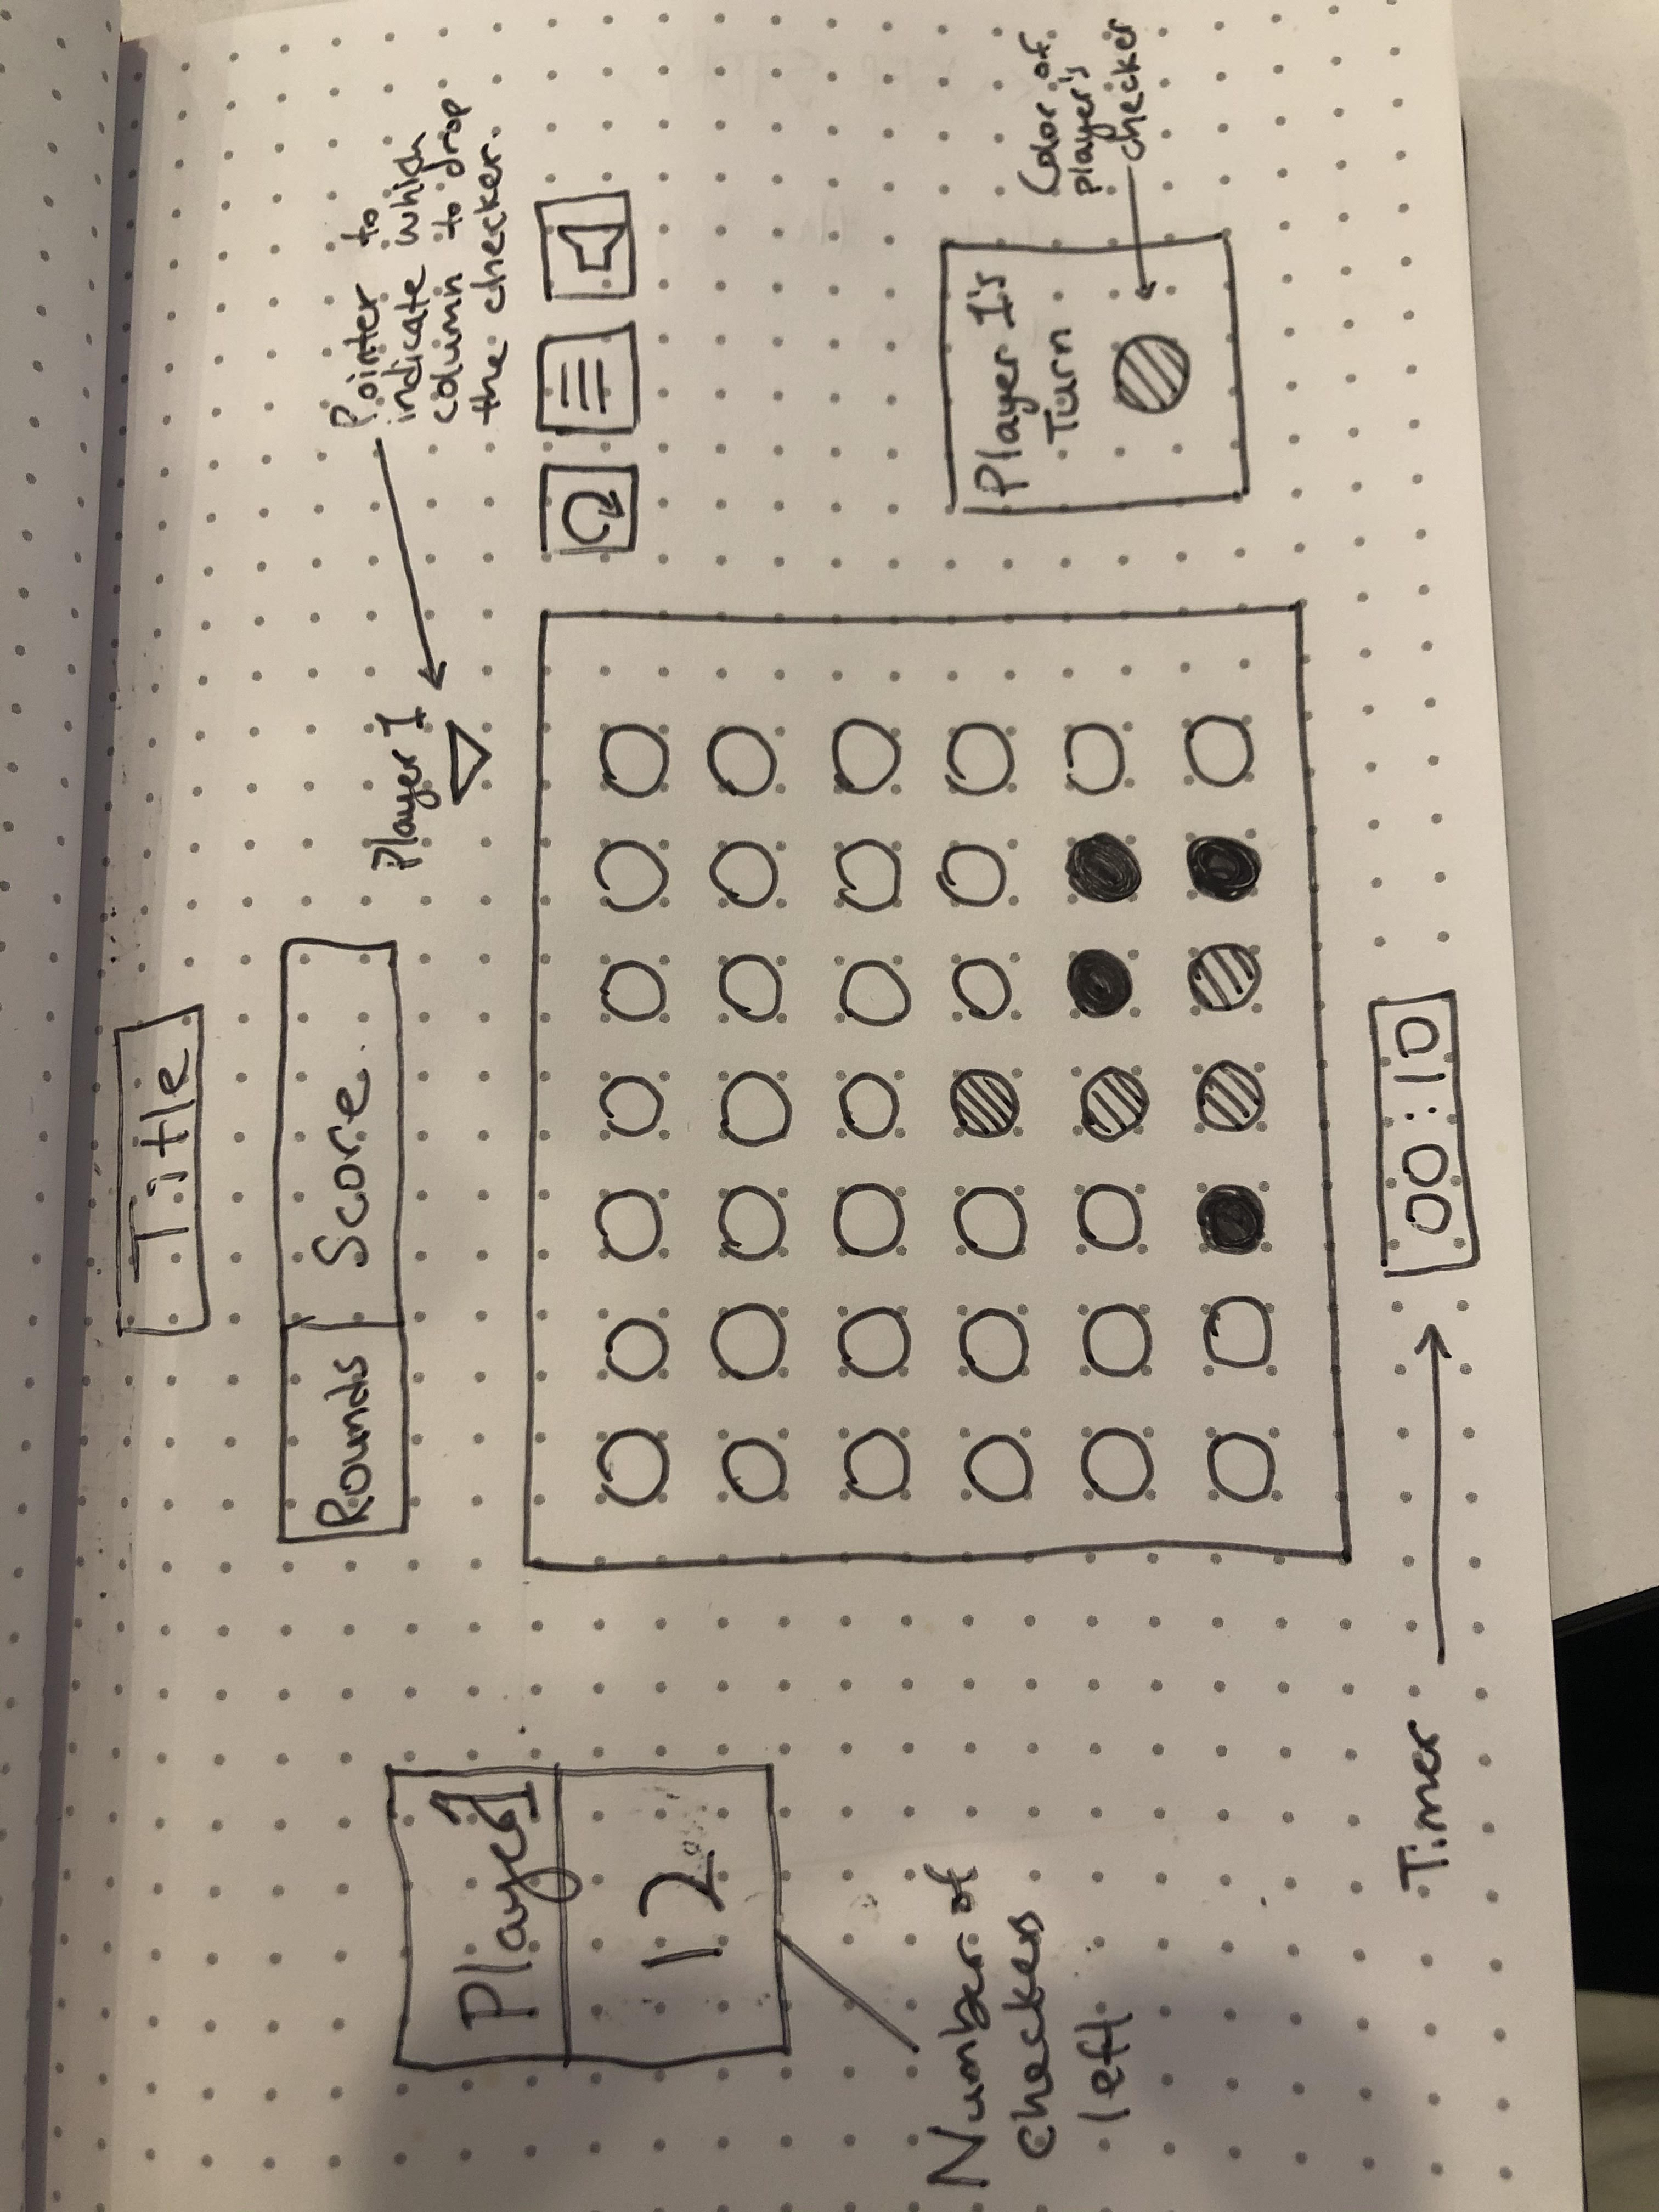 Title
Rounds
Score
Player 1
Pointer to
indicate which
column to drop
the checker.
Player 1
12
Number of
checkers
left
Player 1's
Turn
Color of
player's
checker
Timer
00:10